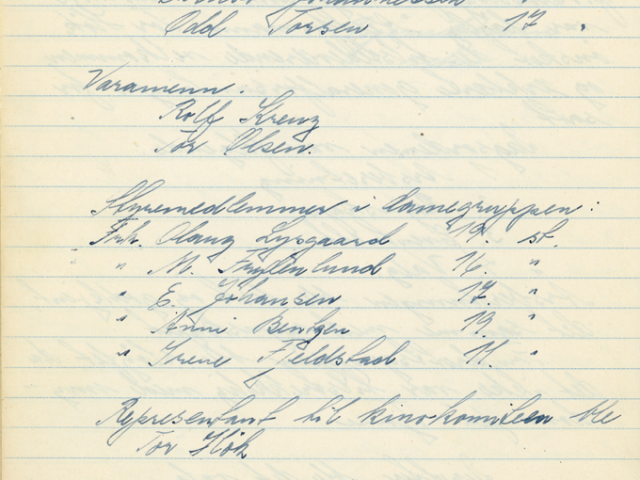 Odd Torsen 17 "
Varamenn.
Rolf Kreuz
Tor Olsen.
Styremedlemmer i damegruppen:
Frk. Olaug Lysgaard 19. st.
" M. Fuglenlund 16. "
" E. Johansen 17. "
" Anni Bentzen 19. "
" Irene Fjeldstad 11. "
Representant til kinokomiteen ble
Tor Hök